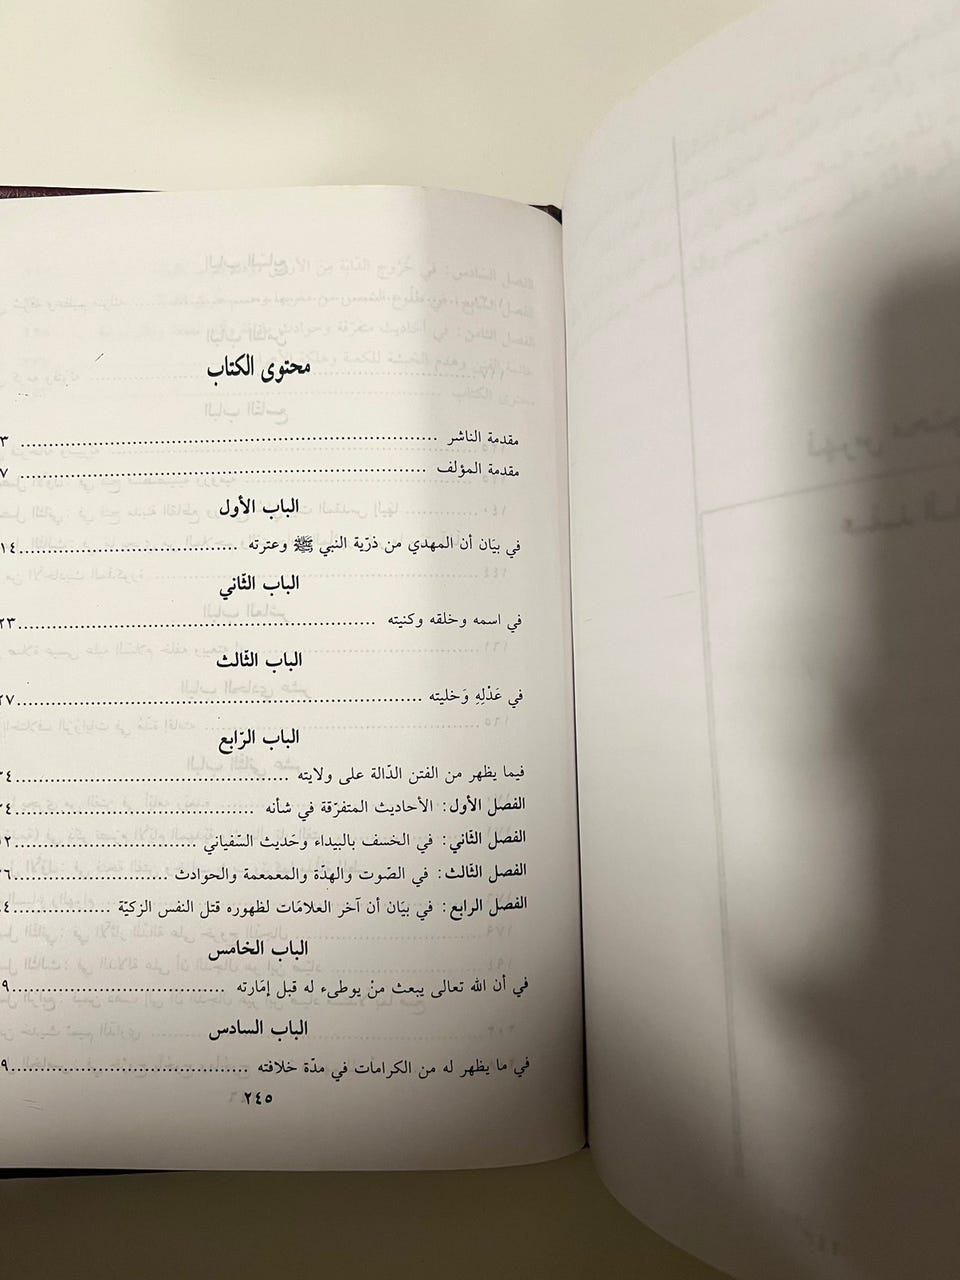 محتوى الكتاب
مقدمة الناشر ........ ٣
مقدمة المؤلف ........ ٧
الباب الأول
في بيَان أن المهدي من ذرّية النبي ﷺ وعترته ........ ١٤
الباب الثّاني
في اسمه وخلقه وكنيته ........ ٢٣
الباب الثّالث
في عَدْلِهِ وَحليته ........ ٢٧
الباب الرّابع
فيما يظهر من الفتن الدّالة على ولايته ........
الفصل الأول: الأحاديث المتفرّقة في شأنه ........
الفصل الثّاني: في الخسف بالبيداء وحَديث السّفياني ........
الفصل الثّالث: في الصّوت والهدّة والمعمعة والحوادث ........
الفصل الرابع: في بيَان أن آخر العلامَات لظهوره قتل النفس الزكيّة ........
الباب الخامس
في أن الله تعالى يبعث منْ يوطىء له قبل إمَارته ........
الباب السادس
في ما يظهر له من الكرامات في مدّة خلافته ........
٢٤٥